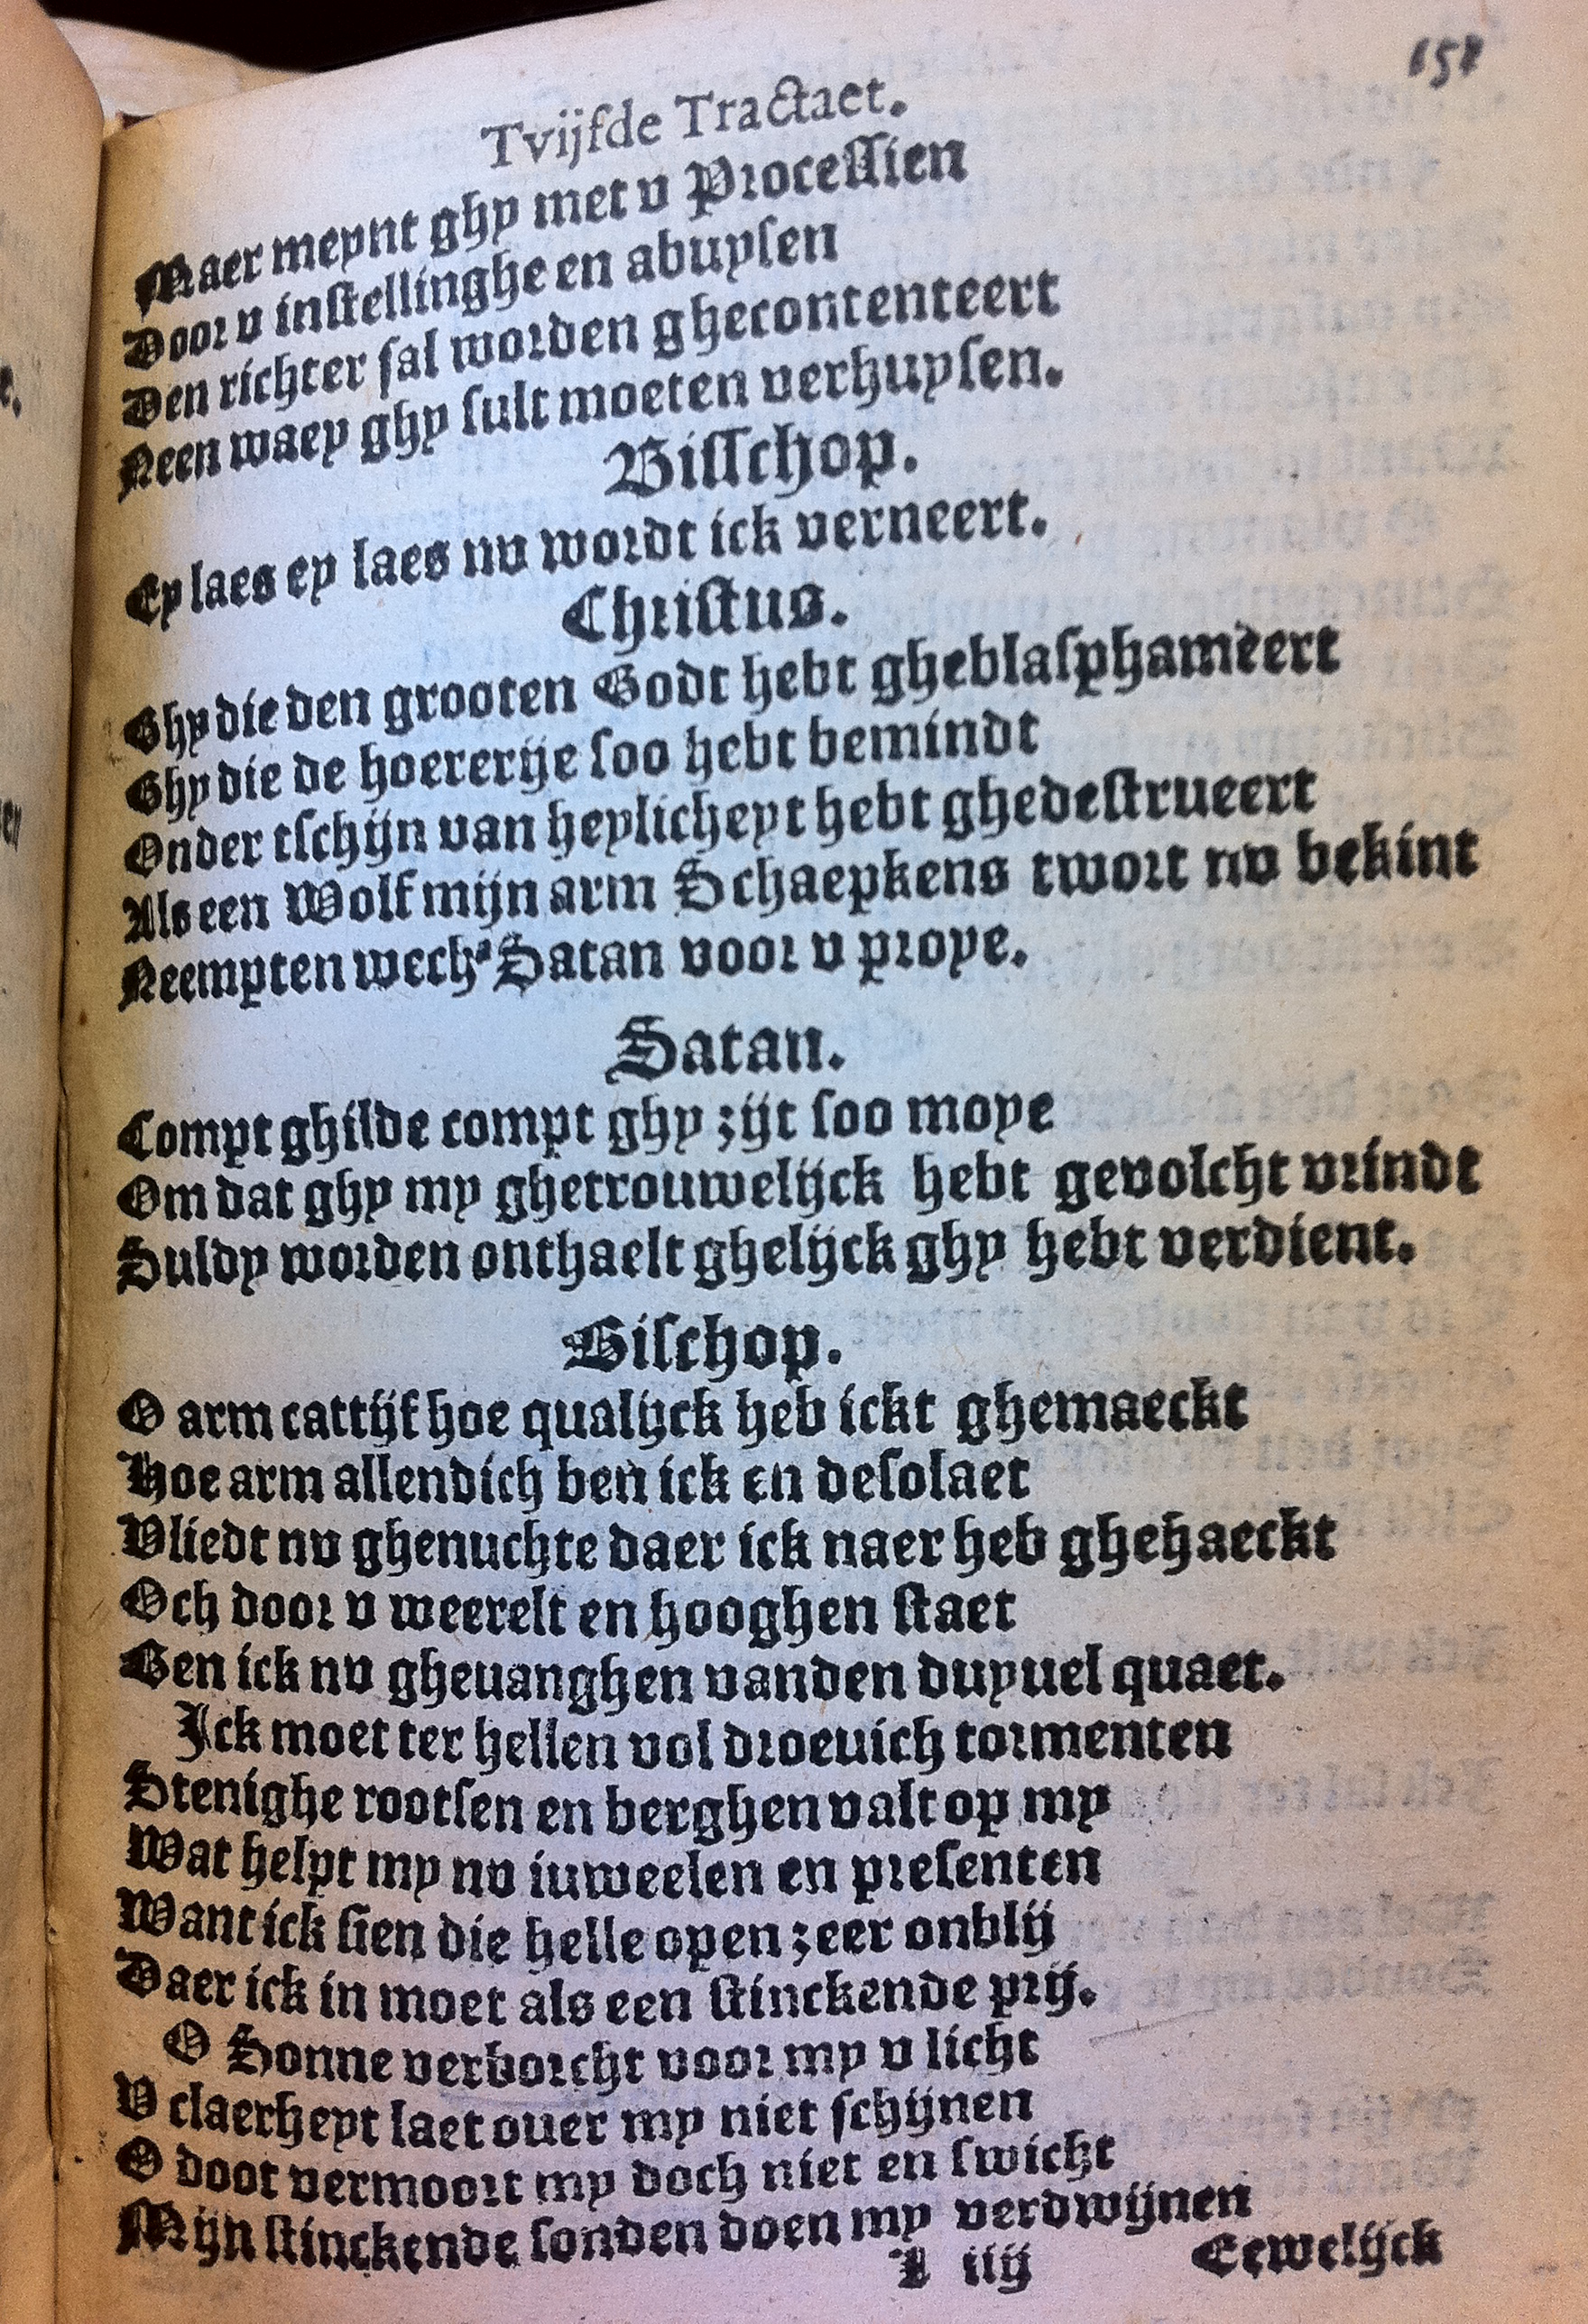 157
Tvijfde Tractaet.
Maer meynt ghy met v Processien
Door v instellinghe en abuysen
Den richter sal worden ghecontenteert
Neen waey ghy sult moeten verhuysen.
Bisschop.
Ey laes ey laes nv wordt ick verneert.
Christus.
Ghy die den grooten Godt hebt gheblasphameert
Ghy die de hoererije soo hebt bemindt
Onder tschijn van heylicheyt hebt ghedestrueert
Als een Wolf mijn arm Schaepkens twort nv bekint
Neempten wech Satan voor v proye.
Satan.
Compt ghilde compt ghy zijt soo moye
Om dat ghy my ghetrouwelijck hebt gevolcht vrindt
Suldy worden onthaelt ghelijck ghy hebt verdient.
Bischop.
O arm cattijf hoe qualijck heb ickt ghemaeckt
Hoe arm allendich ben ick en desolaet
Vliedt nv ghenuchte daer ick naer heb ghehaeckt
Och door v weerelt en hooghen staet
Ben ick nv gheuanghen vanden duyuel quaet.
Ick moet ter hellen vol droeuich tormenten
Stenighe rootsen en berghen valt op my
Wat helpt my nv iuweelen en presenten
Want ick sien die helle open zeer onblij
Daer ick in moet als een stinckende prij.
O Sonne verborcht voor my v licht
V claerheyt laet ouer my niet schijnen
O doot vermoort my doch niet en swicht
Mijn stinckende sonden doen my verdwijnen
I iiij
Eewelijck